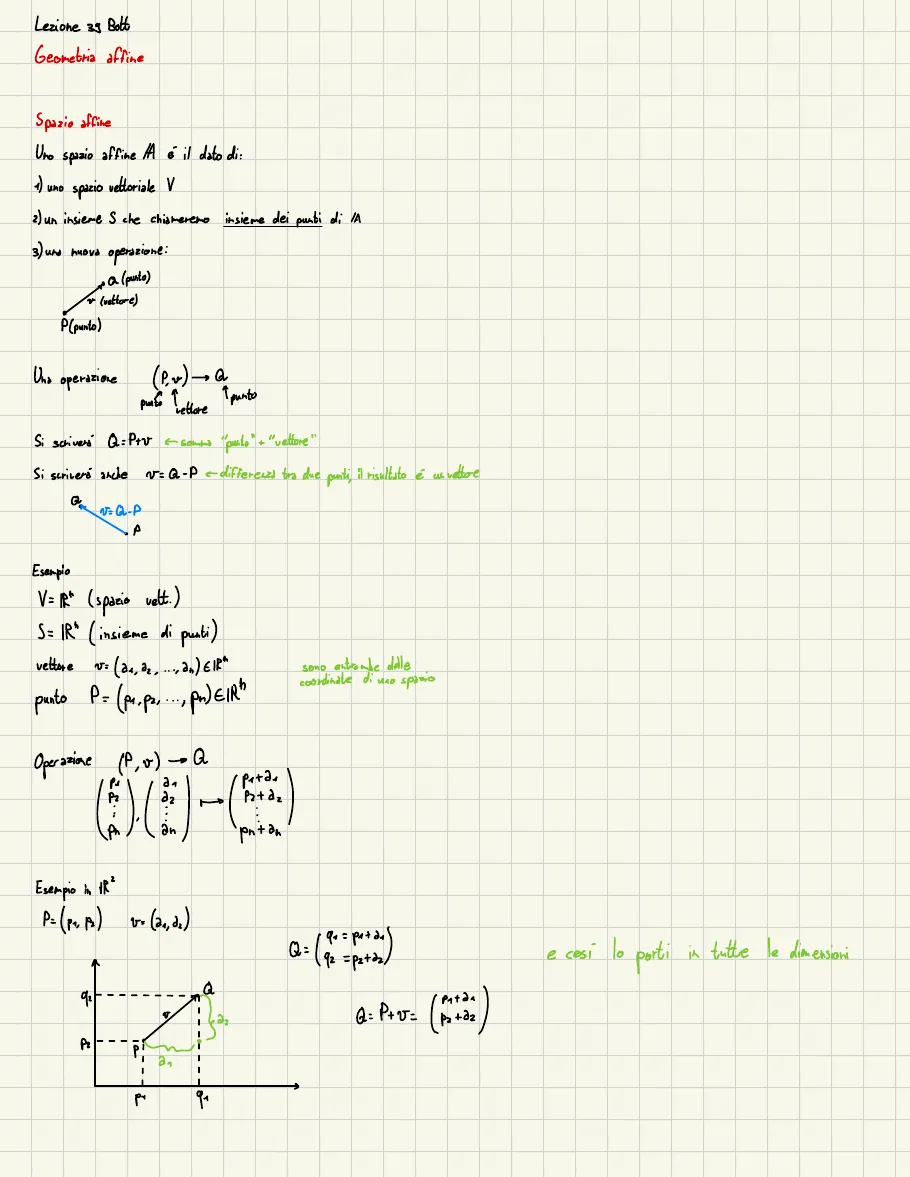 Lezione 39 Bott
Geometria affine
Spazio affine
Uno spazio affine /A é il dato di:
1) uno spazio vettoriale V
2) un insieme S che chiameremo insieme dei punti di /A
3) una nuova operazione:
Q (punto)
v (vettore)
P (punto)
Una operazione (P, v) → Q
punto vettore punto
Si scriverá Q = P+v ← somma "punto" + "vettore"
Si scriverá anche v = Q - P ← differenza tra due punti, il risultato é un vettore
Q v = Q - P
P
Esempio
V = ℝⁿ (spazio vett.)
S = ℝⁿ (insieme di punti)
vettore v = (a₁, a₂, ..., aₙ) ∈ ℝⁿ
sono entrambe delle
coordinate di uno spazio
punto P = (p₁, p₂, ..., pₙ) ∈ ℝⁿ
Operazione (P, v) → Q
(p₁ p₂ ⋮ pₙ), (a₁ a₂ ⋮ aₙ) ↦ (p₁+a₁ p₂+a₂ ⋮ pₙ+aₙ)
Esempio in ℝ²
P = (p₁, p₂) v = (a₁, a₂)
Q = (q₁ = p₁+a₁ q₂ = p₂+a₂)
e cosí lo porti in tutte le dimensioni
Q = P+v = (p₁+a₁ p₂+a₂)
q₂ Q
v a₂
p₂ P
a₁
p₁ q₁